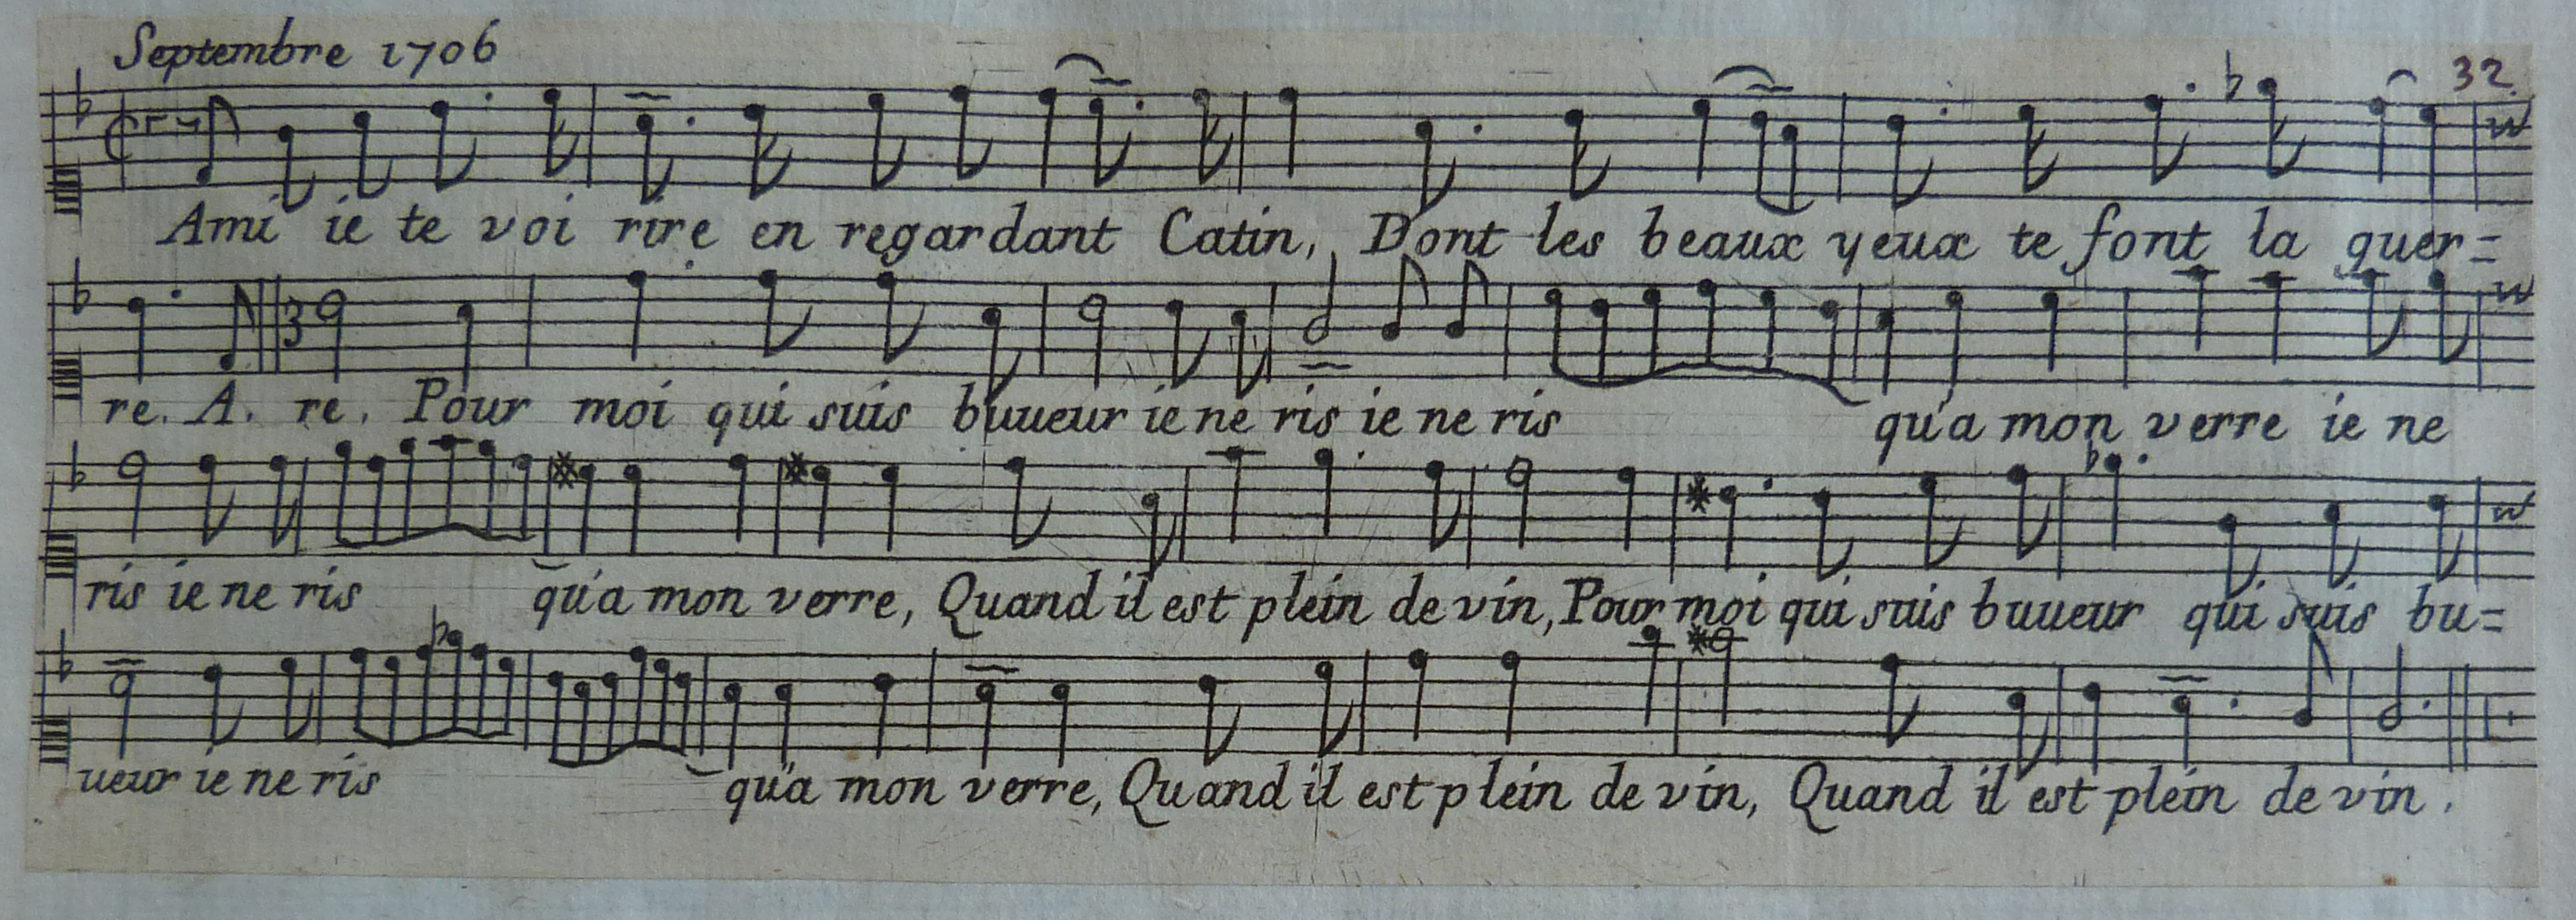 Septembre 1706
32.
Ami ie te voi rire en regardant Catin, Dont les beaux yeux te font la guer=
3
re. A. re. Pour moi qui suis buueur ie ne ris ie ne ris qu'a mon verre ie ne
ris ie ne ris qu'a mon verre, Quand il est plein de vin, Pour moi qui suis buueur qui suis bu=
ueur ie ne ris qu'a mon verre, Quand il est plein de vin, Quand il est plein de vin.